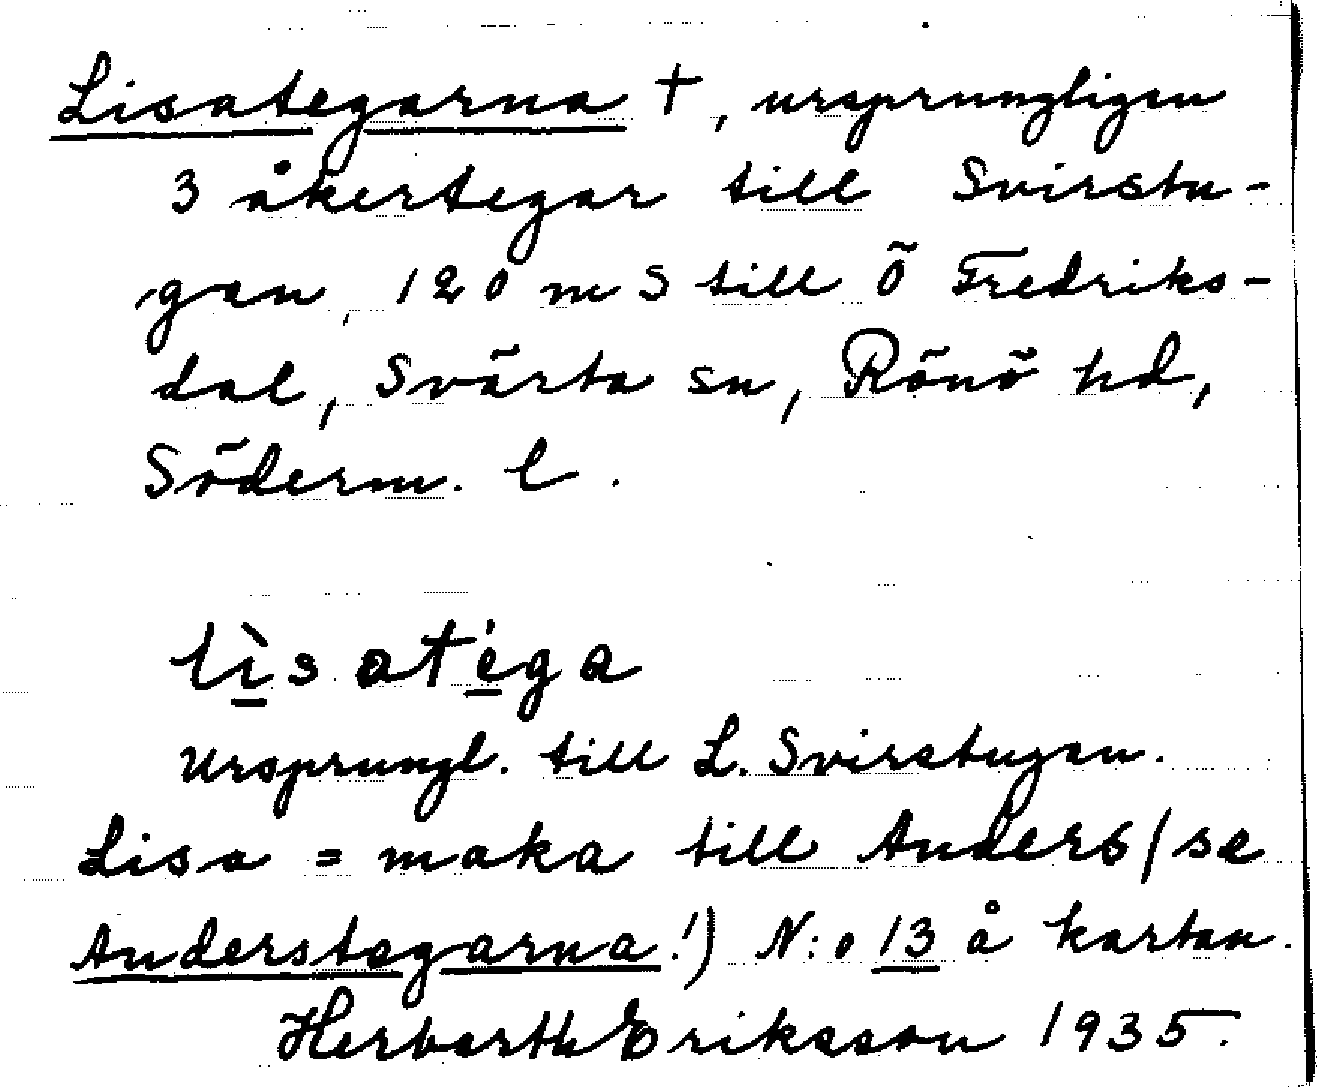 Lisategarna †, ursprungligen
3 åkertegar till Svirstu-
gan, 120 m S till Ö Fredriks-
dal, Svärta sn, Rönö hd,
Söderm. l.
lìsatéga
Ursprungl. till L. Svirstugan.
Lisa = maka till Anders (se
Anderstegarna!) N:o 13 å kartan.
Herbarth Eriksson 1935.